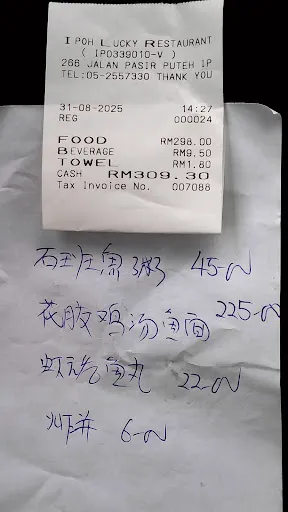 IPOH LUCKY RESTAURANT
( IP0339010-V )
266 JALAN PASIR PUTEH IP
TEL:05-2557330 THANK YOU
31-08-2025 14:27
REG 000024
FOOD RM298.00
BEVERAGE RM9.50
TOWEL RM1.80
CASH RM309.30
Tax Invoice No. 007088
石斑鱼粥 45-00
花胶鸡汤鱼面 225-00
虾 鱼丸 22-00
炸 6-00